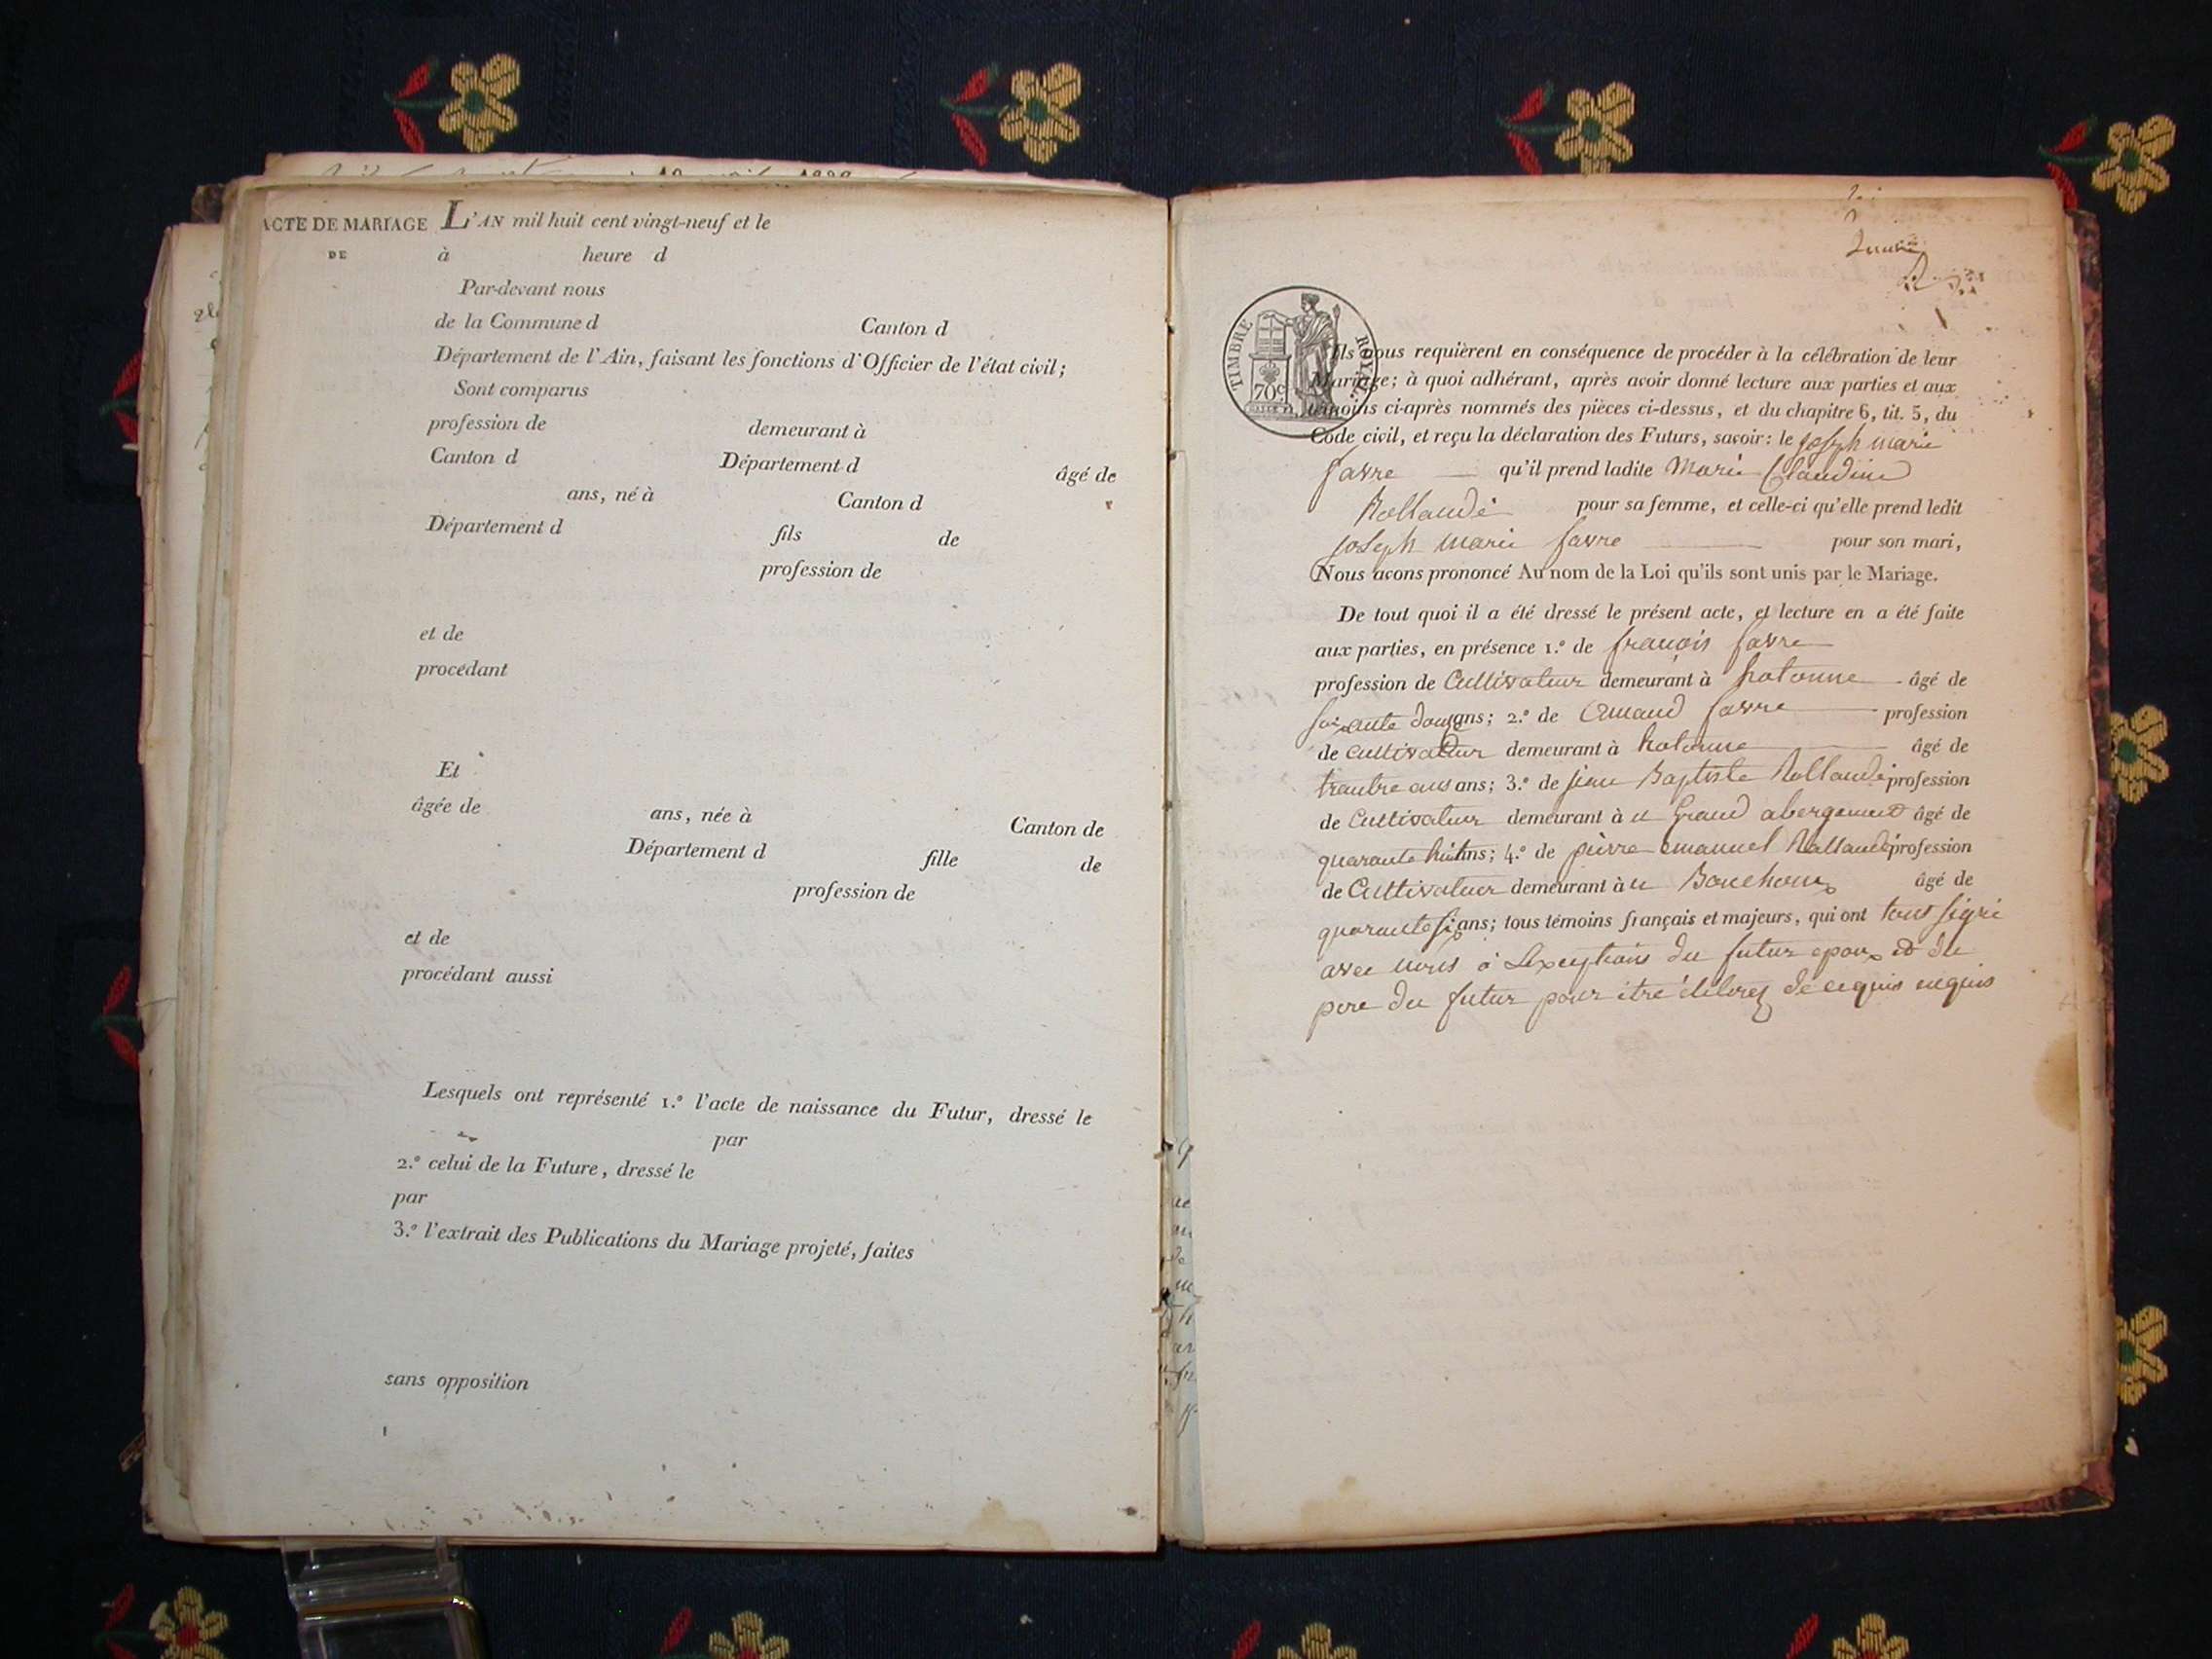 ACTE DE MARIAGE L'AN mil huit cent vingt-neuf et le
DE à heure d
Par-devant nous
de la Commune d Canton d
Département de l'Ain, faisant les fonctions d'Officier de l'état civil;
Sont comparus
profession de demeurant à
Canton d Département d âgé de
ans, né à Canton d
Département d fils de
profession de
et de
procédant
Et
âgée de ans, née à Canton de
Département d fille de
profession de
et de
procédant aussi
Lesquels ont représenté 1.º l'acte de naissance du Futur, dressé le
par
2.º celui de la Future, dressé le
par
3.º l'extrait des Publications du Mariage projeté, faites
sans opposition
TIMBRE ROYAL
70c
Ils nous requièrent en conséquence de procéder à la célébration de leur
Mariage; à quoi adhérant, après avoir donné lecture aux parties et aux
témoins ci-après nommés des pièces ci-dessus, et du chapitre 6, tit. 5, du
Code civil, et reçu la déclaration des Futurs, savoir: le joseph marie
favre qu'il prend ladite Marie Claudine
Rollandé pour sa femme, et celle-ci qu'elle prend ledit
joseph marie favre pour son mari,
Nous avons prononcé Au nom de la Loi qu'ils sont unis par le Mariage.
De tout quoi il a été dressé le présent acte, et lecture en a été faite
aux parties, en présence 1.º de françois favre
profession de Cultivateur demeurant à hotonne âgé de
soixante douze ans; 2.º de Amand favre profession
de cultivateur demeurant à hotonne âgé de
ans; 3.º de jean Baptiste Rollandé profession
de Cultivateur demeurant à u Grand abergement âgé de
quarante huit ans; 4.º de pierre emanuel Rollandé profession
de Cultivateur demeurant à u Bouchoux âgé de
quarante six ans; tous témoins français et majeurs, qui ont tous signé
avec nous à Lexception du futur epoux et du
pere du futur pour être de ce quis enquis